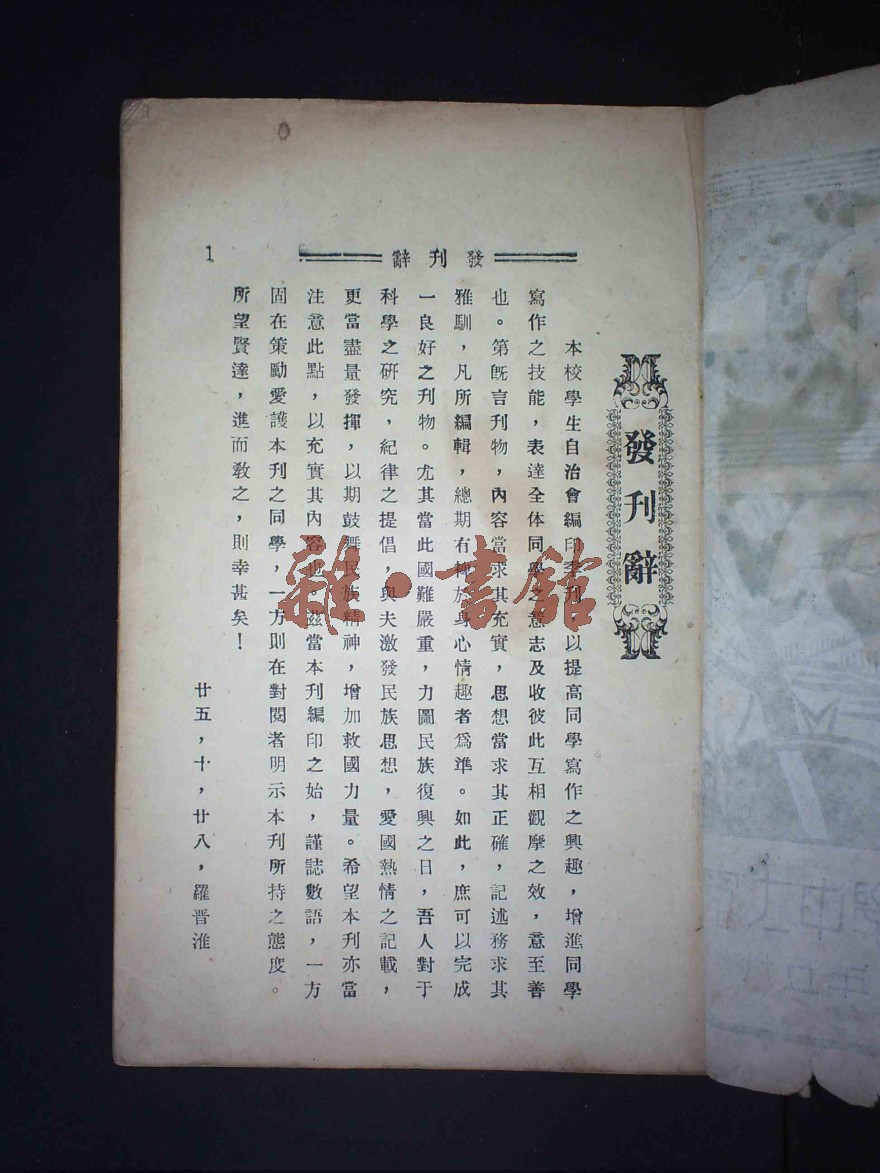 發刊辭
1
發刊辭
本校學生自治會編印季刊，以提高同學寫作之興趣，增進同學
寫作之技能，表達全体同學之意志及收彼此互相觀摩之效，意至善
也。第既言刊物，內容當求其充實，思想當求其正確，記述務求其
雅馴，凡所編輯，總期有裨於身心情趣者爲準。如此，庶可以完成
一良好之刊物。尤其當此國難嚴重，力圖民族復興之日，吾人對于
科學之研究，紀律之提倡，與夫激發民族思想，愛國熱情之記載，
更當盡量發揮，以期鼓舞民族精神，增加救國力量。希望本刊亦當
注意此點，以充實其內容也。茲當本刊編印之始，謹誌數語，一方
固在策勵愛護本刊之同學，一方則在對閱者明示本刊所持之態度。
所望賢達，進而敎之，則幸甚矣！
廿五，十，廿八，羅晋淮
雜·書館